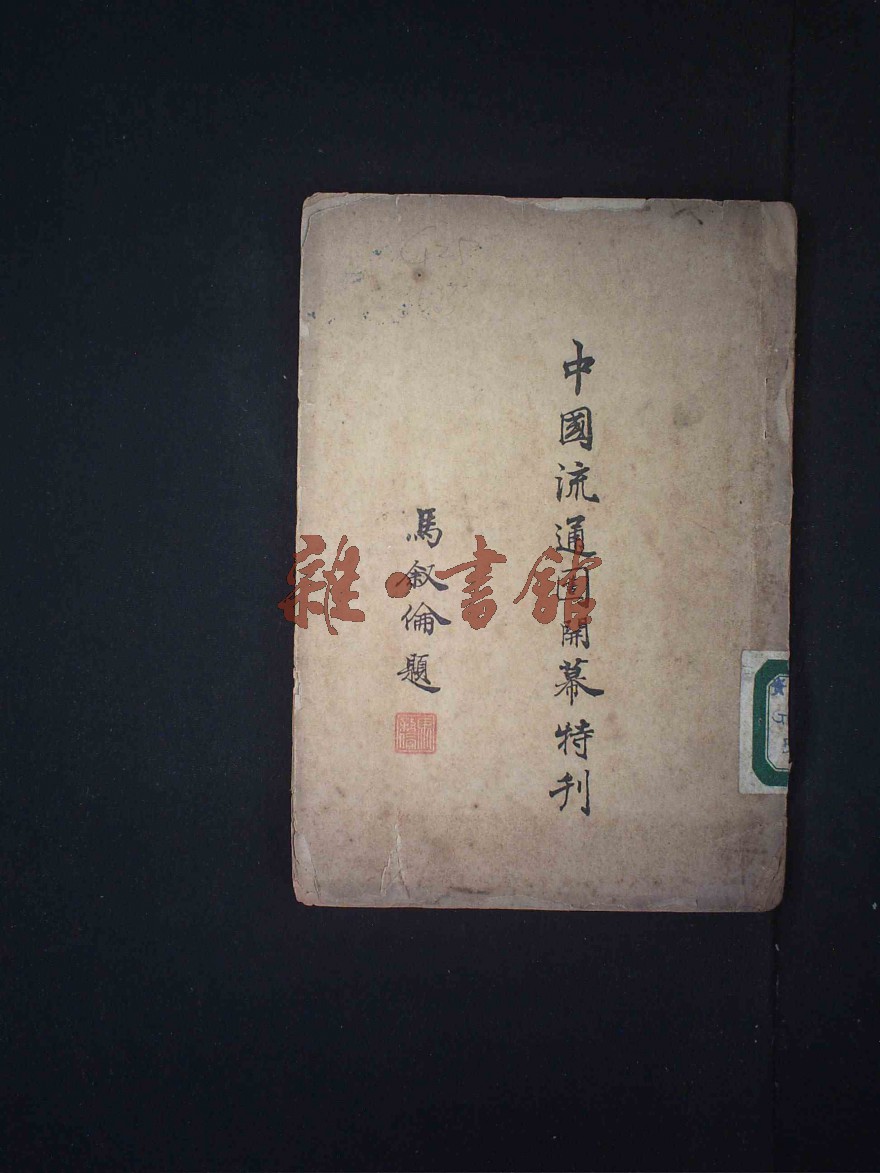 中國流通圕開幕特刊
馬叙倫題
雜·書館